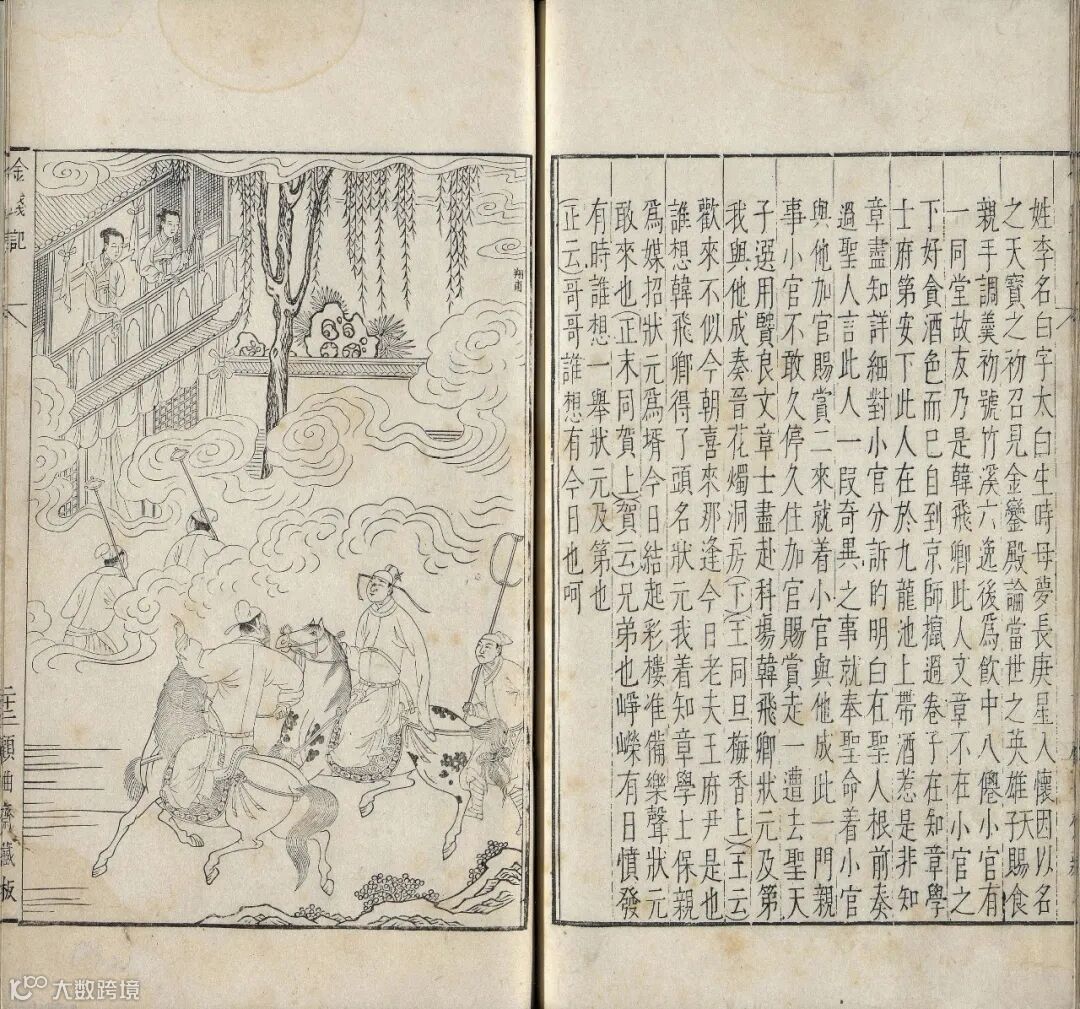 姓李名白字太白生時母夢長庚星入懷因以名
之天寶之初召見金鑾殿論當世之英雄天子賜食
親手調羹初號竹溪六逸後爲飲中八僊小官有
一同堂故友乃是韓飛卿此人文章不在小官之
下好貪酒色而已自到京師攛過卷子在知章學
士府第安下此人在於九龍池上帶酒惹是非知
章盡知詳細對小官分訴的明白在聖人根前奏
過聖人言此人一叚奇異之事就奉聖命着小官
與他加官賜賞二來就着小官與他成此一門親
事小官不敢久停久住加官賜賞走一遭去聖天
子選用賢良文章士盡赴科場韓飛卿狀元及第
我與他成奏晉花燭洞房(下)(王同旦梅香上)(王云
歡來不似今朝喜來那逢今日老夫王府尹是也
誰想韓飛卿得了頭名狀元我着知章學士保親
爲媒招狀元爲壻今日結起彩樓准備樂聲狀元
敢來也(正末同賀上)(賀云)兄弟也崢嶸有日憤發
有時誰想一舉狀元及第也
(正云)哥哥誰想有今日也呵
翔甫
金錢記
顧曲齋藏板
大数跨境